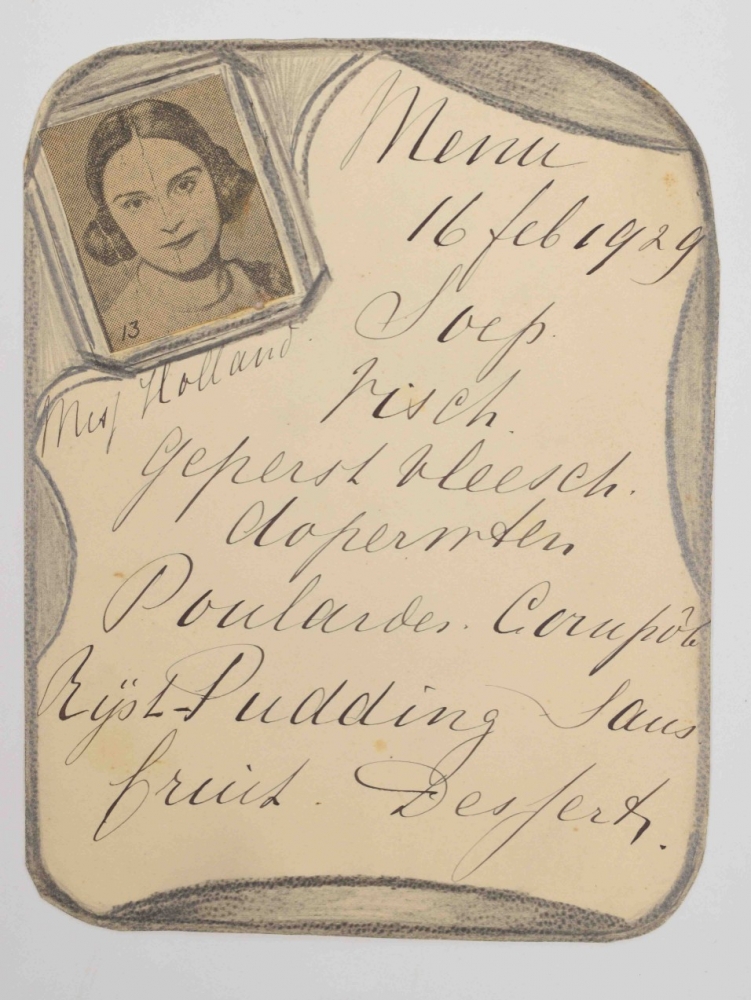 Menu
16 feb 1929
Soep.
Visch.
Geperst vleesch.
doperwten
Poulardes. Compôt
Rijst-Pudding Saus
fruit. Dessert.
13
Miss Holland.